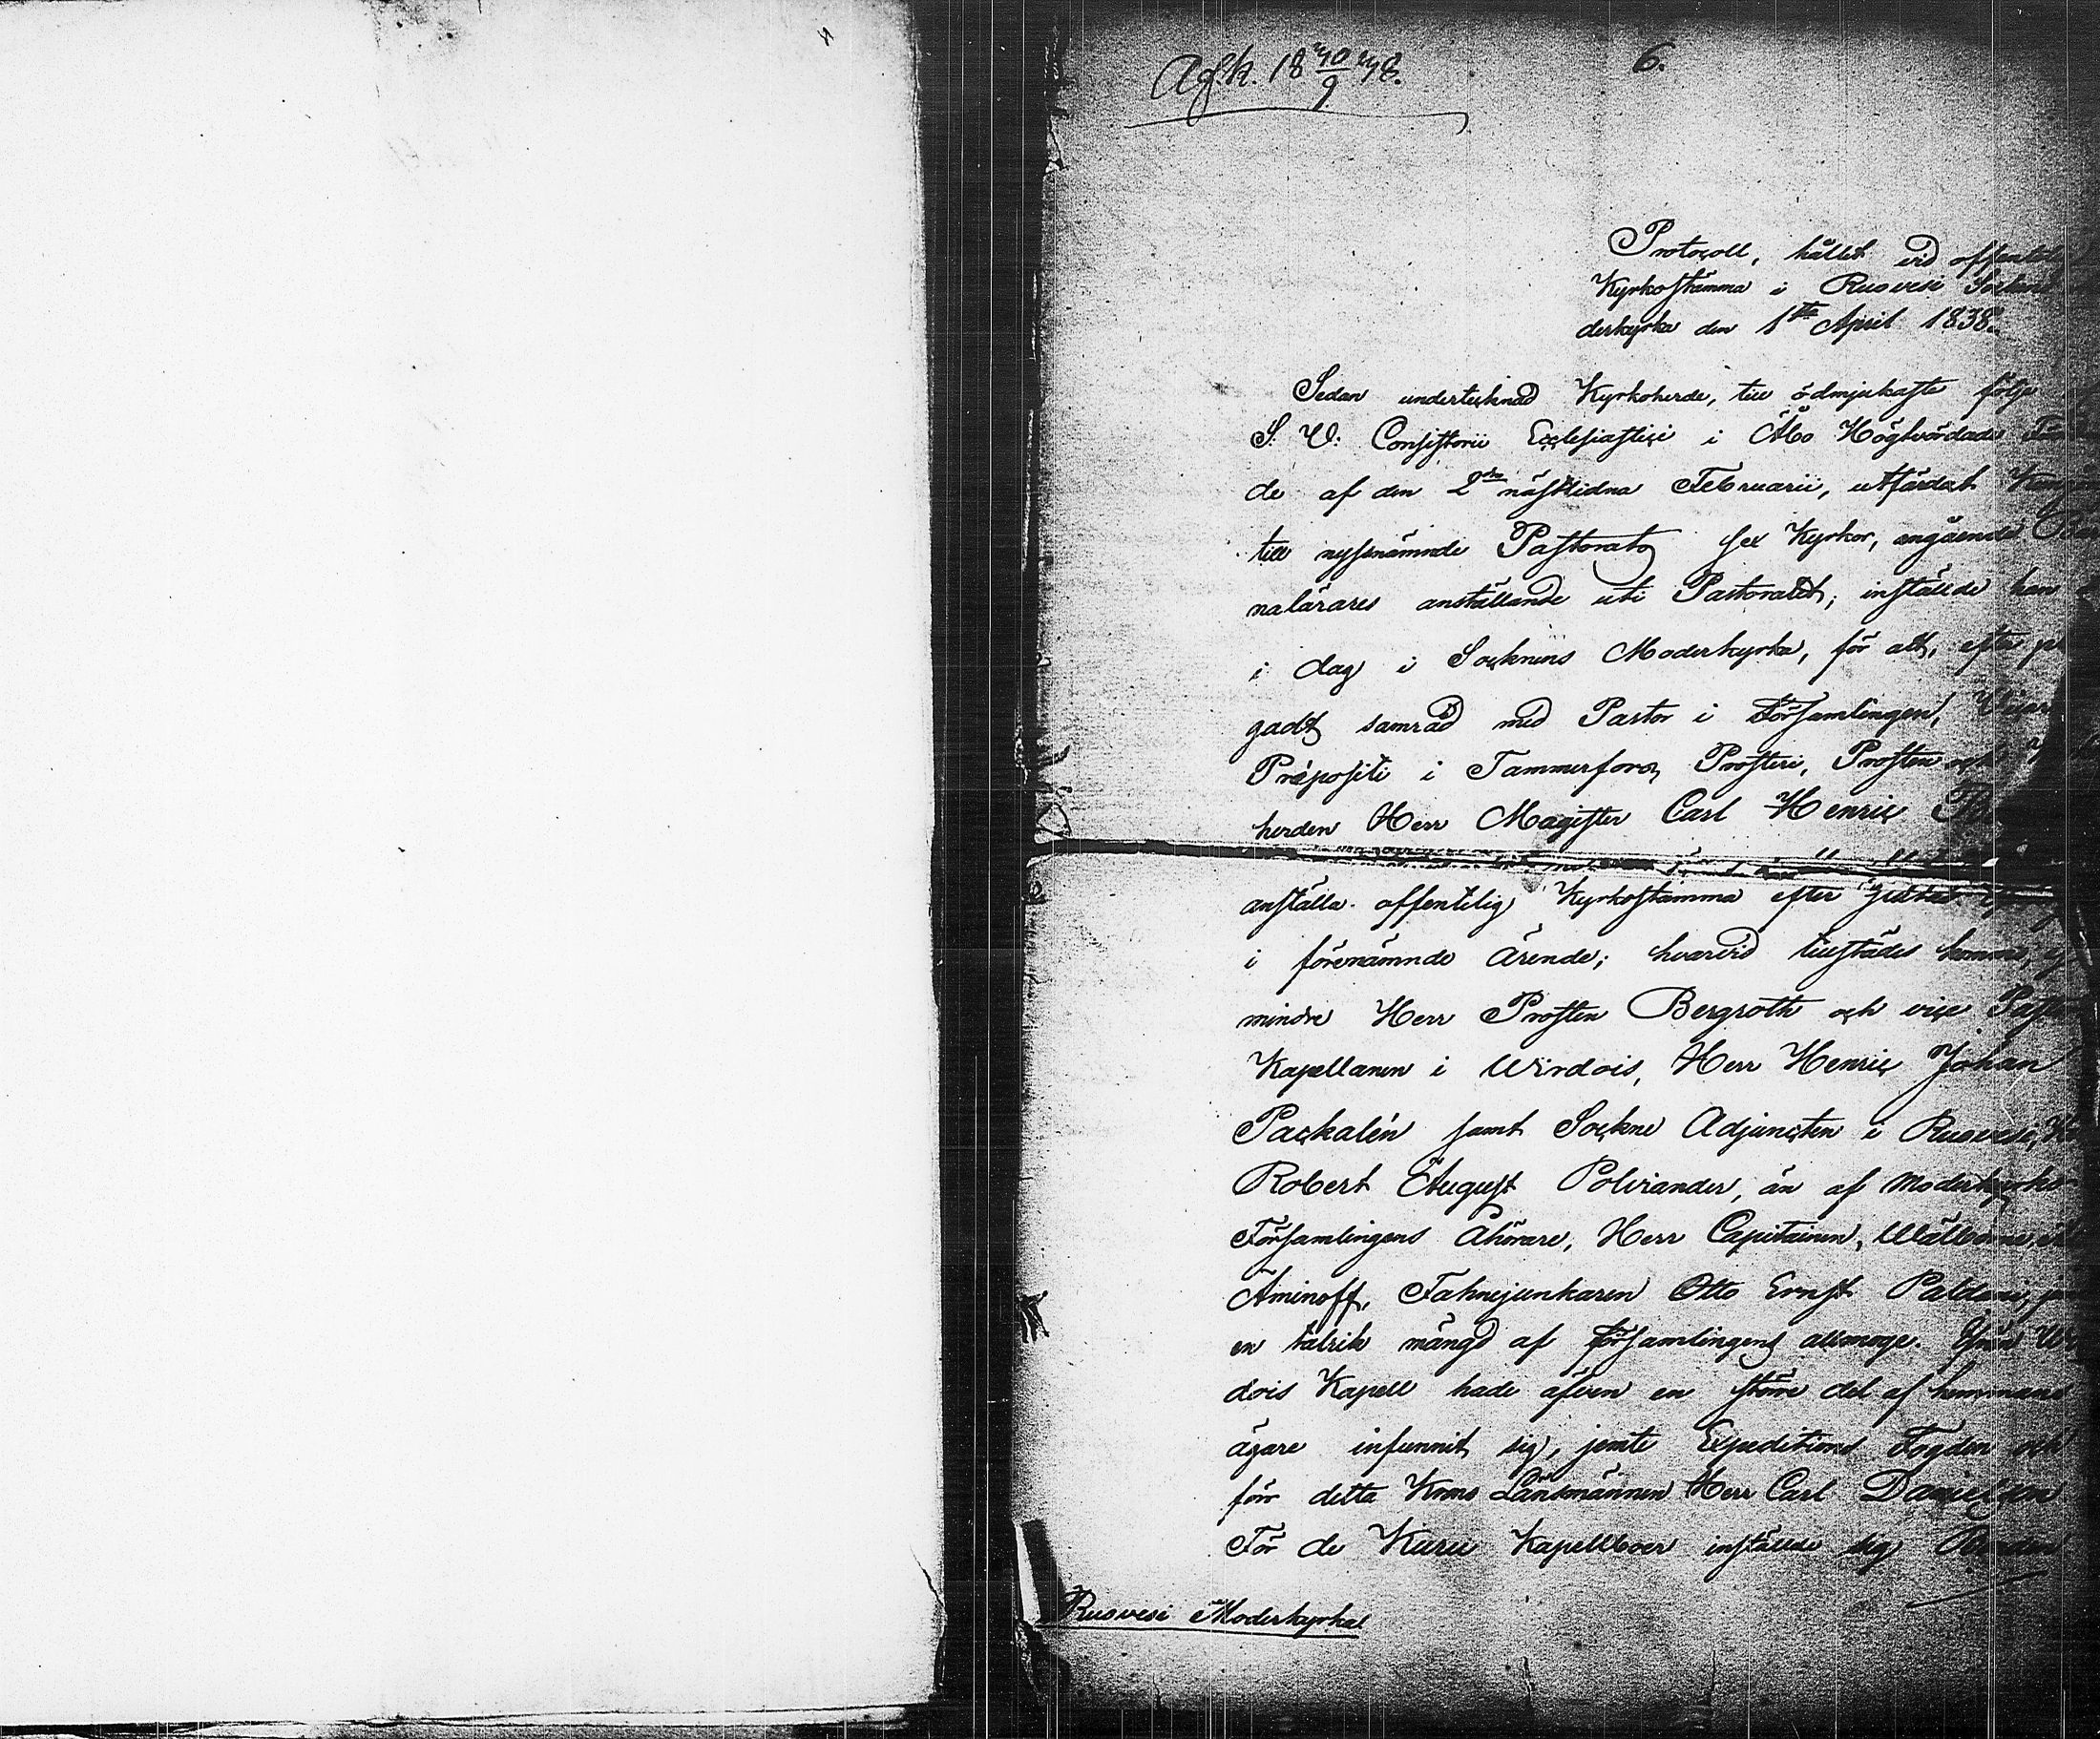 6.
Protocoll, hållet vid offentlig
Kyrkostämma i Ruovesi Sockens
derkyrka den 1ste April 1838.
Sedan undertecknad Kyrkoherde, till ödmjukaste följe
S: V: Consistorii Ecclesiastici i Åbo Högtvördade
de af den 2dra nästlidna Februarii, utfärdat
till nyssnämnde Pastorats sex Kyrkor, angående
nalärares anställande uti Pastoratet; inställde han
i dag i Socknens Moderkyrka, för att, efter
gadt samråd med Pastor i Församlingen,
Præpositi i Tammerfors Prosteri, Prosten och
herden Herr Magister Carl Henric
anställa offentelig Kyrkostämma efter
i förenämnde ärende; hvarvid tillstädes kommo,
mindre Herr Prosten Bergroth och vice
Kapellanen i Wirdois, Herr Henric Johan
Packalén samt Sockne Adjuncten i Ruovesi,
Robert August Polviander, än af Moderkyrko
Församlingens Åhörare, Herr Capitainen, Wälborne
Aminoff, Fahnejunkaren Otto Ernst Paldani,
en talrik mängd af Församlingens allmoge. Ifrån
dois Kapell hade äfven en större del af hemmans
ägare infunnit sig, jemte Expeditions Fogden och
förr detta Krono Länsmannen Herr Carl Danielson
För de Kuru Kapellboer inställde sig
Ruovesi Moderkyrka